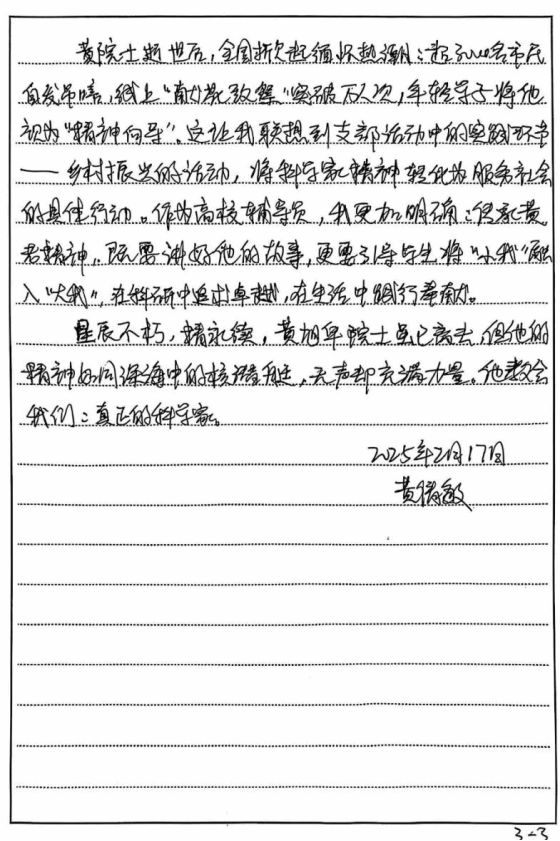 黄院士逝世后，全国掀起缅怀热潮：超3000名市民
自发吊唁，线上“献花致敬”突破万人次，年轻学子将他
视为“精神向导”。这让我联想到支部活动中的实践环节
——乡村振兴的活动，将科学家精神转化为服务社会
的具体行动。作为高校辅导员，我更加明确：传承黄
老精神，既要讲好他的故事，更要引导学生将“小我”融
入“大我”，在科研中追求卓越，在生活中践行奉献。
星辰不朽，精永续，黄旭华院士虽已离去，但他的
精神如同深海中的核潜艇，无声却充满力量。他教会
我们：真正的科学家。
2025年2月17日
黄 敏
3-3